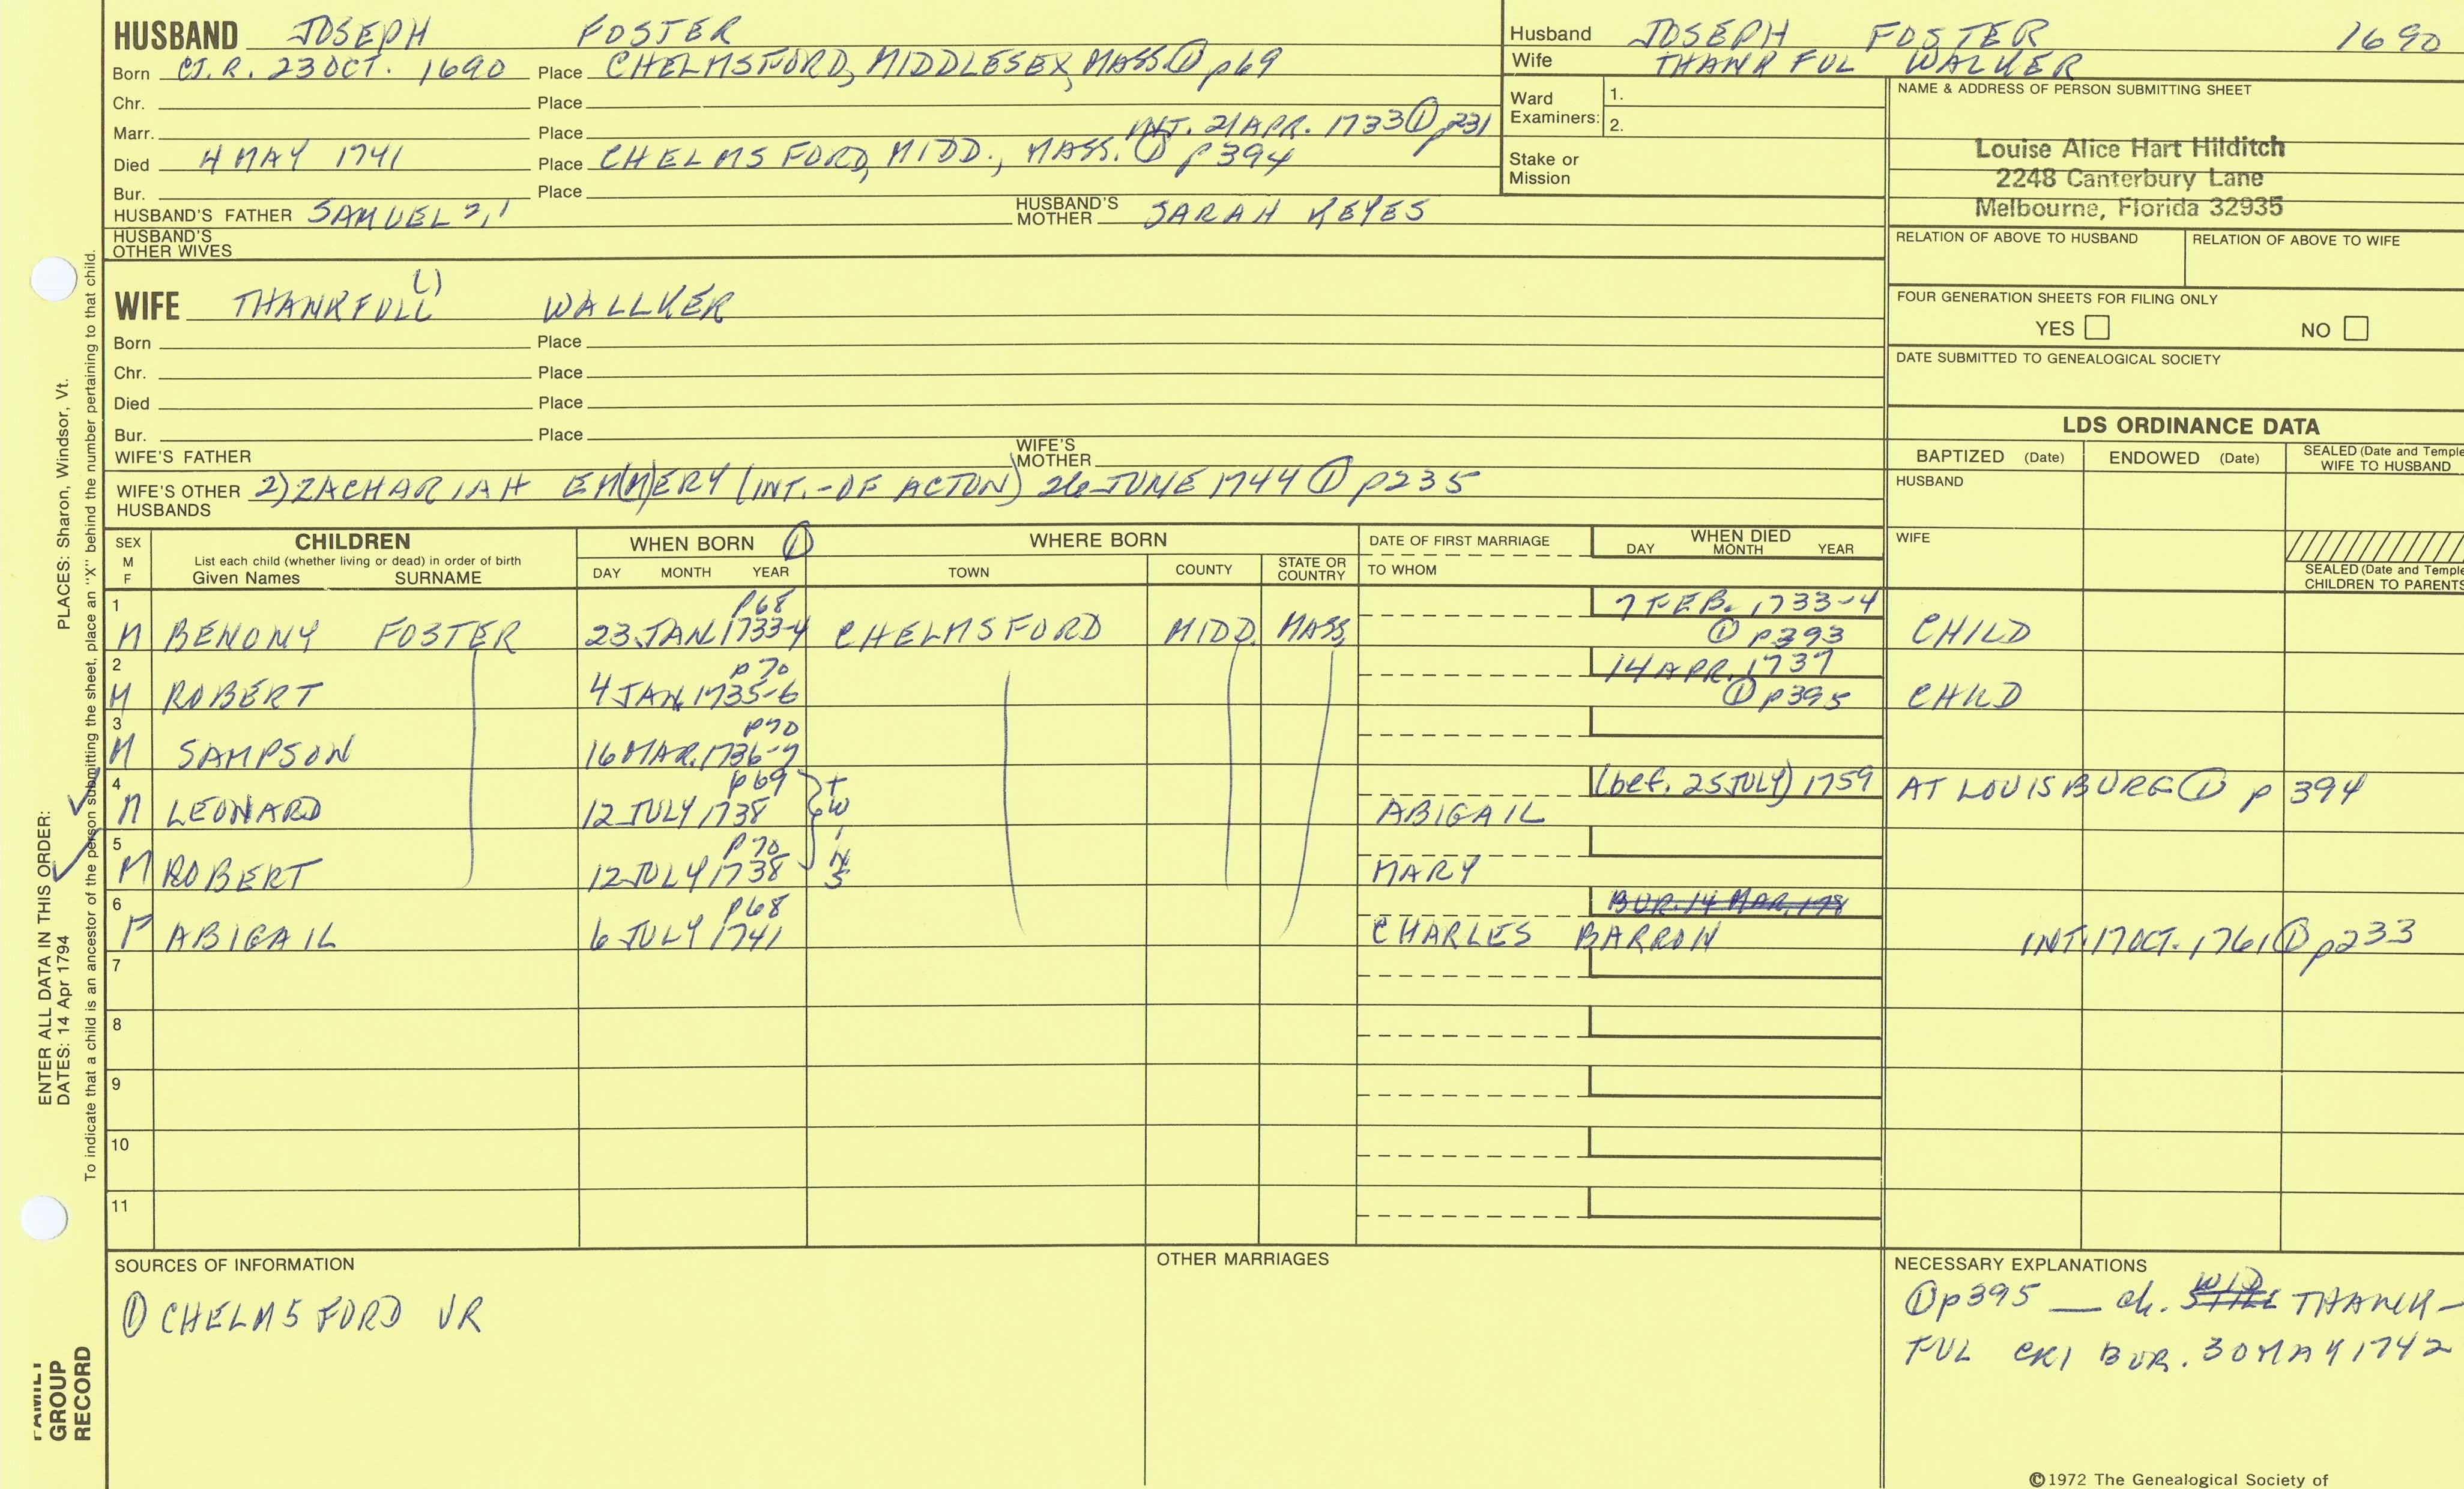 HUSBAND JOSEPH FOSTER
Born CT.R. 23 OCT. 1690 Place CHELMSFORD, MIDDLESEX, MASS ① p69
Chr. Place
Marr. Place INT. 21 APR. 1733 ① p231
Died 4 MAY 1741 Place CHELMSFORD, MIDD., MASS. ① p394
Bur. Place
HUSBAND'S FATHER SAMUEL 2,1 HUSBAND'S MOTHER SARAH KEYES
HUSBAND'S OTHER WIVES
Husband JOSEPH FOSTER 1690
Wife THANKFUL WALKER
Ward Examiners: 1.
2.
Stake or Mission
NAME & ADDRESS OF PERSON SUBMITTING SHEET
Louise Alice Hart Hilditch
2248 Canterbury Lane
Melbourne, Florida 32935
RELATION OF ABOVE TO HUSBAND RELATION OF ABOVE TO WIFE
FOUR GENERATION SHEETS FOR FILING ONLY
YES NO
DATE SUBMITTED TO GENEALOGICAL SOCIETY
WIFE THANKFULL WALLKER
Born Place
Chr. Place
Died Place
Bur. Place
WIFE'S FATHER WIFE'S MOTHER
WIFE'S OTHER HUSBANDS 2) ZACHARIAH EM(M)ERY (INT.-OF ACTON) 26 JUNE 1744 ① p235
LDS ORDINANCE DATA
BAPTIZED (Date) ENDOWED (Date) SEALED (Date and Temple
WIFE TO HUSBAND
HUSBAND
WIFE
SEALED (Date and Temple
CHILDREN TO PARENTS
SEX M F CHILDREN WHEN BORN ① WHERE BORN DATE OF FIRST MARRIAGE WHEN DIED
List each child (whether living or dead) in order of birth
Given Names SURNAME DAY MONTH YEAR TOWN COUNTY STATE OR COUNTRY TO WHOM DAY MONTH YEAR
1 p68 7 FEB. 1733-4
M BENONY FOSTER 23 JAN 1733-4 CHELMSFORD MIDD. MASS. ① p393 CHILD
2 p70 14 APR. 1737
M ROBERT 4 JAN 1735-6 ① p395 CHILD
3 p70
M SAMPSON 16 MAR. 1736-7
4 p69 (bef. 25 JULY) 1759 AT LOUISBURG ① p 394
M LEONARD 12 JULY 1738 TWINS ABIGAIL
5 p70
M ROBERT 12 JULY 1738 MARY
6 p68 BUR. 14 MAR. 178
F ABIGAIL 6 JULY 1741 CHARLES BARRON INT. 17 OCT. 1761 ① p233
7
8
9
10
11
SOURCES OF INFORMATION OTHER MARRIAGES NECESSARY EXPLANATIONS
① CHELMSFORD VR
① p395 — ch. WID THANK-
FUL CR1 BUR. 30 MAY 1742
©1972 The Genealogical Society of
PLACES: Sharon, Windsor, Vt.
ENTER ALL DATA IN THIS ORDER:
DATES: 14 Apr 1794
To indicate that a child is an ancestor of the person submitting the sheet, place an "X" behind the number pertaining to that child.
FAMILY
GROUP
RECORD